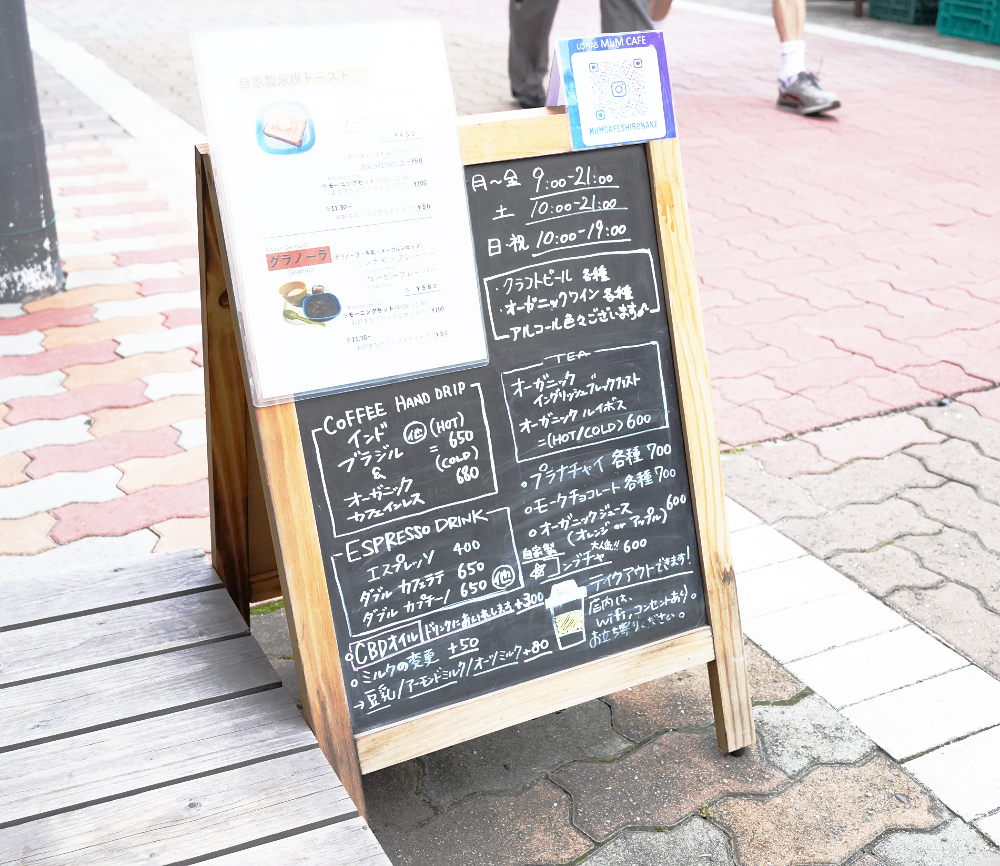 自家製米粉トースト
¥450
¥50
※モーニングセット
¥100
※11:30〜
¥50
グラノーラ
Granola
グラノーラ・牛乳・メープルシロップ
シナモンフレーバー
コーヒーフレーバー
各 ¥580
※モーニングセット
¥100
※11:30〜
¥50
LOHAS MUM CAFE
MUMCAFESHIROKANE
月〜金 9:00-21:00
土 10:00-21:00
日・祝 10:00-19:00
・クラフトビール 各種
・オーガニックワイン 各種
アルコール色々ございます♪
COFFEE HAND DRIP
インド 他 (HOT)
ブラジル = 650
& (COLD)
オーガニック 680
カフェインレス
TEA
オーガニック
イングリッシュブレックファスト
オーガニック ルイボス
=(HOT/COLD) 600
ESPRESSO DRINK
エスプレッソ 400
ダブル カフェラテ 650
ダブル カプチーノ 650 他
。プラナチャイ 各種 700
。モークチョコレート 各種 700
。オーガニックジュース 600
(オレンジ or アップル)
自家製 大人気!!
コンブチャ 600
。CBDオイル ドリンクにお入れします +300
。ミルクの変更 +50
→豆乳/アーモンドミルク/オーツミルク +80
テイクアウトできます!
店内は、
wifi、コンセントあり。
お立ち寄りください。